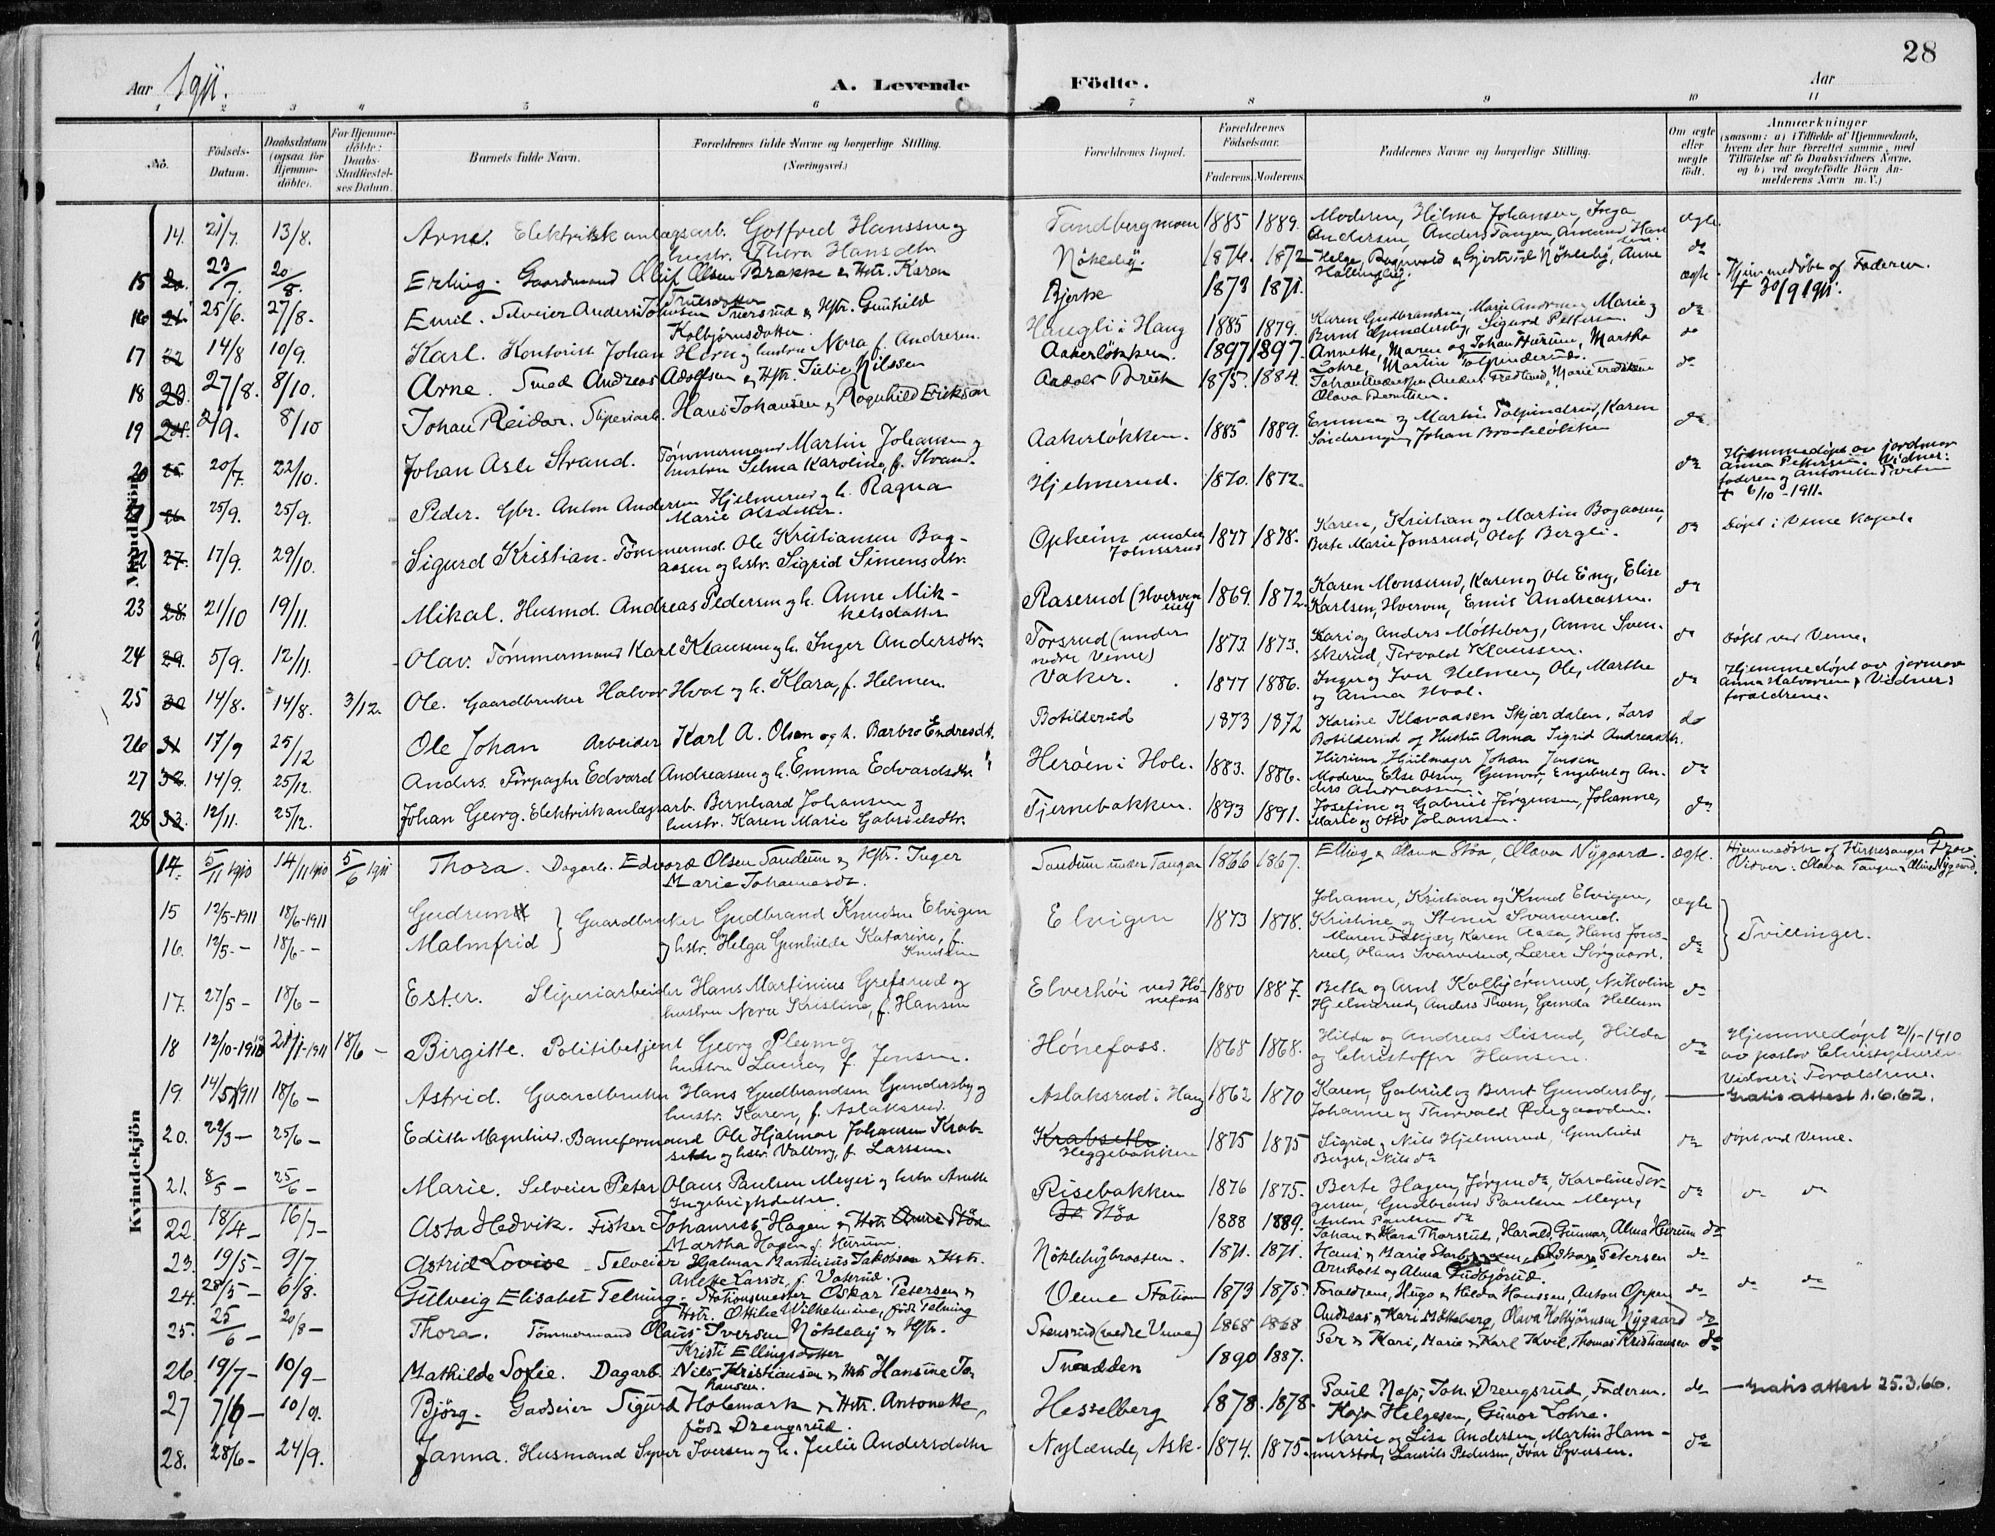 28
Aar 1911. A. Levende Födte. Aar
1 2 3 4 5 6 7 8 9 10 11
No. Födsels-Datum. Daabsdatum (ogsaa for Hjemmedöbte). For Hjemmedöbte: Daabs-Stadfæstelses Datum. Barnets fulde Navn. Forældrenes fulde Navne og borgerlige Stilling. (Næringsvei.) Forældrenes Bopæl. Forældrenes Födselsaar. Faderens. Moderens. Faddernes Navne og borgerlige Stilling. Om ægte eller uægte födt. Anmærkninger (saasom: a) i Tilfælde af Hjemmedaab, hvem der har forrettet samme, med Tilföielse af to Daabsvidners Navne, og b) ved uægtefödte Börn Anmelderens Navn m. V.)
Mandkjön
14. 21/7. 13/8. Arne. Elektriskanlægsarb. Gotfred Hanssen og Tandbergmoen 1885 1889. Moderen, Hilma Johansen, Inga ægte.
hustr. Thora Hansdtr. Andersen, Anders Tangen,
15 23/7. 20/8. Erling. Gaardmand Oluf Olsen Brække & Hstr. Karen Nökleby. 1874. 1872 Helge, Ragnvald & Gjertrud Nökleby, Anne do
Trulsdatter
16 25/6. 27/8. Emil. Selveier Anders Johnsen Tuersrud & Hstr. Gunhild Bjerke 1873 1871. ægte Hjemmedøbt af Faderen.
Kolbjørnsdatter + 30/9 1911.
17 14/8 10/9. Karl. Kontorist Johan Horn og hustru Nora f. Andresen. Haugli i Haug 1885 1879. Karen Gudbrandsen, Marie Andersen, Marie do
Bernt Gundersby, Sigurd Pettersen.
18 27/8. 8/10. Arne. Smed Andreas Adolfsen & Hstr. Julie Nilssen Aakerløkken. 1897 1897. Annette, Maren og Johan Hurum, Martha do
Lohre, Martin Tolpinderud.
19 2/9. 8/10 Johan Reidar. Sliperiarb. Hans Johansen & Ragnhild Erikson Aadals Bruk 1875. 1884. do
20 20/7. 22/10. Johan Asle Strand. Tømmermand Martin Johansen og Aakerløkken. 1885 1889. Emma og Martin Tolpindrud, Karen do
hustru Selma Karoline, f. Strand. Sönderengen, Johan
21 25/9. 25/9. Peder. Gbr. Anton Andersen Hjelmerud og h. Ragna Hjelmerud. 1870. 1872. do Hjemmedøpt av jordmor
Marie Olsdatter. Anna Pettersen. Vidner:
faderen og Antonette Tveten
+ 6/10-1911.
22 27. 17/9. 29/10. Sigurd Kristian. Tømmermd. Ole Kristiansen Bog- Opheim under 1877 1878. Karen, Kristian og Martin Bogaasen, do Døpt i Veme kapel.
aasen og hstr. Sigrid Simensdtr. Jonsrud Berte Marie Jonsrud, Olof Bergli.
23 28. 21/10 19/11. Mikal. Husmd. Andreas Pedersen og h. Anne Mik- Raserud (Hverven 1869. 1872. Karen Monserud, Karen og Ole Eng, Elise do
kelsdatter Karlsen, Hverven, Emil Andreassen.
24 29. 5/9. 12/11. Olav. Tømmermand Karl Klausen og h. Inger Andersdtr. Torsrud (under 1873. 1873. Kari og Anders Møtteberg, Anne Sven- do Døpt ved Veme.
nedre Veme) skerud, Torvald Klaussen.
25 30 14/8. 14/8. 3/12. Ole. Gaardbruker Halvor Hval og h. Klara, f. Helmen. Vaker. 1877 1886. Inger og Iver Helmen, Ole, Marthe do Hjemmedøpt av jormor
og Anna Hval. Anna Halvorsen, Vidner:
forældrene.
26 31 17/9 25/12 Ole Johan Arbeider Karl A. Olsen og h. Barbro Endresdt. Botilderud 1873 1872 Karine Klevaasen Skjærdalen, Lars do
Botilderud og Hustru Anna Sigrid Andreasdtr.
27 32. 14/9. 25/12. Anders. Forpagter Edvard Andreassen og h. Emma Edvardsdtr. Herøen i Hole. 1883. 1886. Hurum Hjulmager Johan Jensen do
Moderen, Else Olsen, Gunvor, Engebret og An-
ders Andreassen
28 33. 12/11. 25/12. Johan Georg. Elektriskanlægsarb. Bernhard Johansen og Tjernebakken. 1893 1891. Josefine og Gabriel Jørgensen, Johanne, do
hustr. Karen Marie Gabrielsdtr. Marie og Otto Johansen.
Kvindekjön
14. 5/11 1910 14/11 1910 5/6 1911 Thora. Dagarb. Edvard Olsen Tandum & Hstr. Inger Tandum under Tangen 1866 1867. Elling & Olava Støa, Olava Nygaard. ægte. Hjemmedøbt af Kirkesanger
Marie Johannesdt. Vidner: Olava Tangen & Olava Nygaard.
15 12/5-1911 18/6-1911 Gudrun } Gaardbruker Gudbrand Knudsen Elvigen Elvigen 1873 1878. Johanne, Kristian og Knud Elvigen, ægte } Tvillinger.
Kristine og Stener Svarverud.
16. 12/5- - 18/6- - Malmfrid og hstr. Helga Gunhilda Katarine, f. Maren Fokjær, Karen Aasa, Hans Jons- do
Knudsen rud, Olaus Svarverud, Lærer Sørgaard.
17. 27/5 - 18/6 - Ester. Sliperiarbeider Hans Martinius Grefsrud og Elverhöi ved Hö- 1880 1887. Betta og Arnt Kolbjørnrud, Nikoline do
hustru Nora Kristine, f. Hansen nefoss Hjelmerud, Anders Thoen, Gunda Hellum
18 12/10-1910 21/1-1911 18/6 - Birgitte. Politibetjent Georg Pleym og Hönefoss. 1868 1868. Hilda og Andreas Disrud, Hilda do Hjemmedøpt 21/1-1910
hustru Laura, f. Jensen. og Christoffer Hansen. av pastor
Vidner: Forældrene.
19. 14/5 1911 18/6 - Astrid. Gaardbruker Hans Gudbrandsen Gundersby og Aslaksrud i Haug 1862 1870 Karen, Gabriel og Bernt Gundersby, Gratis attest 1.6.62.
hustr. Karen, f. Aslaksrud. Johanne og Thorvald Ødegaarden.
20. 22/3 - 25/6 - Edith Magnhild. Baneformand Ole Hjalmar Johansen Krab- Krabsethr. 1875 1875 Sigrid & Nils Hjelmerud, Gunhild do Døpt ved Veme.
seth og hstr. Valborg, f. Larssen. Heggebakken Berget, Nils do
21. 8/5 - 25/6 - Marie. Selveier Peter Olaus Paulsen Meyer og hustr Anette Risebakken 1876 1875. Berte Hagen, Jørgen do, Karoline Tor- do do do
Ingebrigtsdatter. gersen, Gudbrand Paulsen Meyer,
22. 18/4 - 16/7 - Asta Hedvik. Fisker Johannes Hagen & Hstr. Anne Støa Støa 1888 1889. Anton Paulsen do
Martha Hagen f. Hurum. Johan & Kara Thorsrud, Harald, Gunnar, Alma Hurum do
23. 19/5 - 9/7. Astrid Lovise Selveier Hjalmar Martinius Jakobsen & Hstr. Nöklebybraaten. 1871. 1871. Hans & Marie Oskar Petersen do
Anette Larsdt. f. Vaterud. Arnholt og Alma Gudbjørud.
24. 28/5 - 6/8. Gulveig Elisabet Telning. Stationsmester Oskar Petersen & Veme Station 1873 1875. Forældrene, Hugo & Hilda Hanssen, Anton Oppen do do do
Hstr. Ottilie Wilhelmine, født Telning
25. 25/6 - 20/8 - Thora. Tømmermand Olaus Iversen Nökleby & Hstr. Stensrud (nedre Veme) 1868 1868 Andreas & Kari Møtteberg, Olava Kolbjørnsen Nygaard do
Kristi Ellingsdatter Per & Kari, Marie & Karl Kvil, Thomas Kristiansen do
26. 19/7 - 10/9 - Mathilde Sofie. Dagarb. Nils Kristiansen & Hstr Hansine Jo- Tradden 1890 1887.
hansen.
27 7/6 - 10/9. Björg. Gadseier Sigurd Holmark & Hstr. Antonette, Hesselberg 1878. 1878. Paul Nass, Joh. Drengsrud, Faderen. do Gratis attest 25.3.66.
født Drengsrud. Kaja Helgesen, Gunor Lohre.
28. 28/6 - 24/9. Janna. Husmand Syver Iversen og h. Julie Andersdatter Nylænde, Ask. 1874. 1875. Marie og Lise Andersen, Martin Ham- do
merstad, Laurits Pedersen, Ivar Syversen.